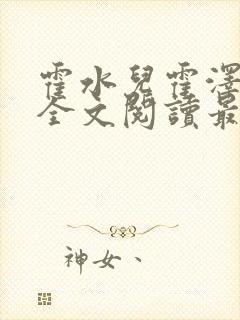 霍水兒霍澤
全文閱讀最
神女、